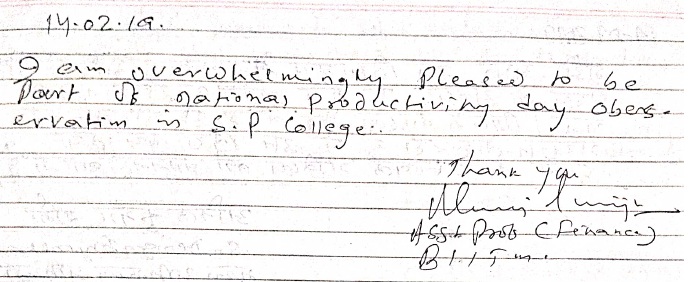 14.02.19.
I am overwhelmingly pleased to be
Part of national Productiviny day obers-
ervation in S.P College.
Thank you
Asst Prof (Finance)
BIITM.